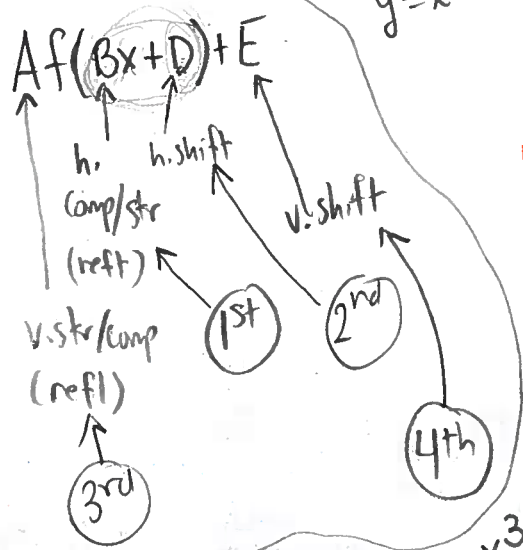 y=x
Af(Bx+D)+E
h.
comp/str
(refl)
h.shift
v.shift
v.str/comp
(refl)
1st
2nd
3rd
4th
x3